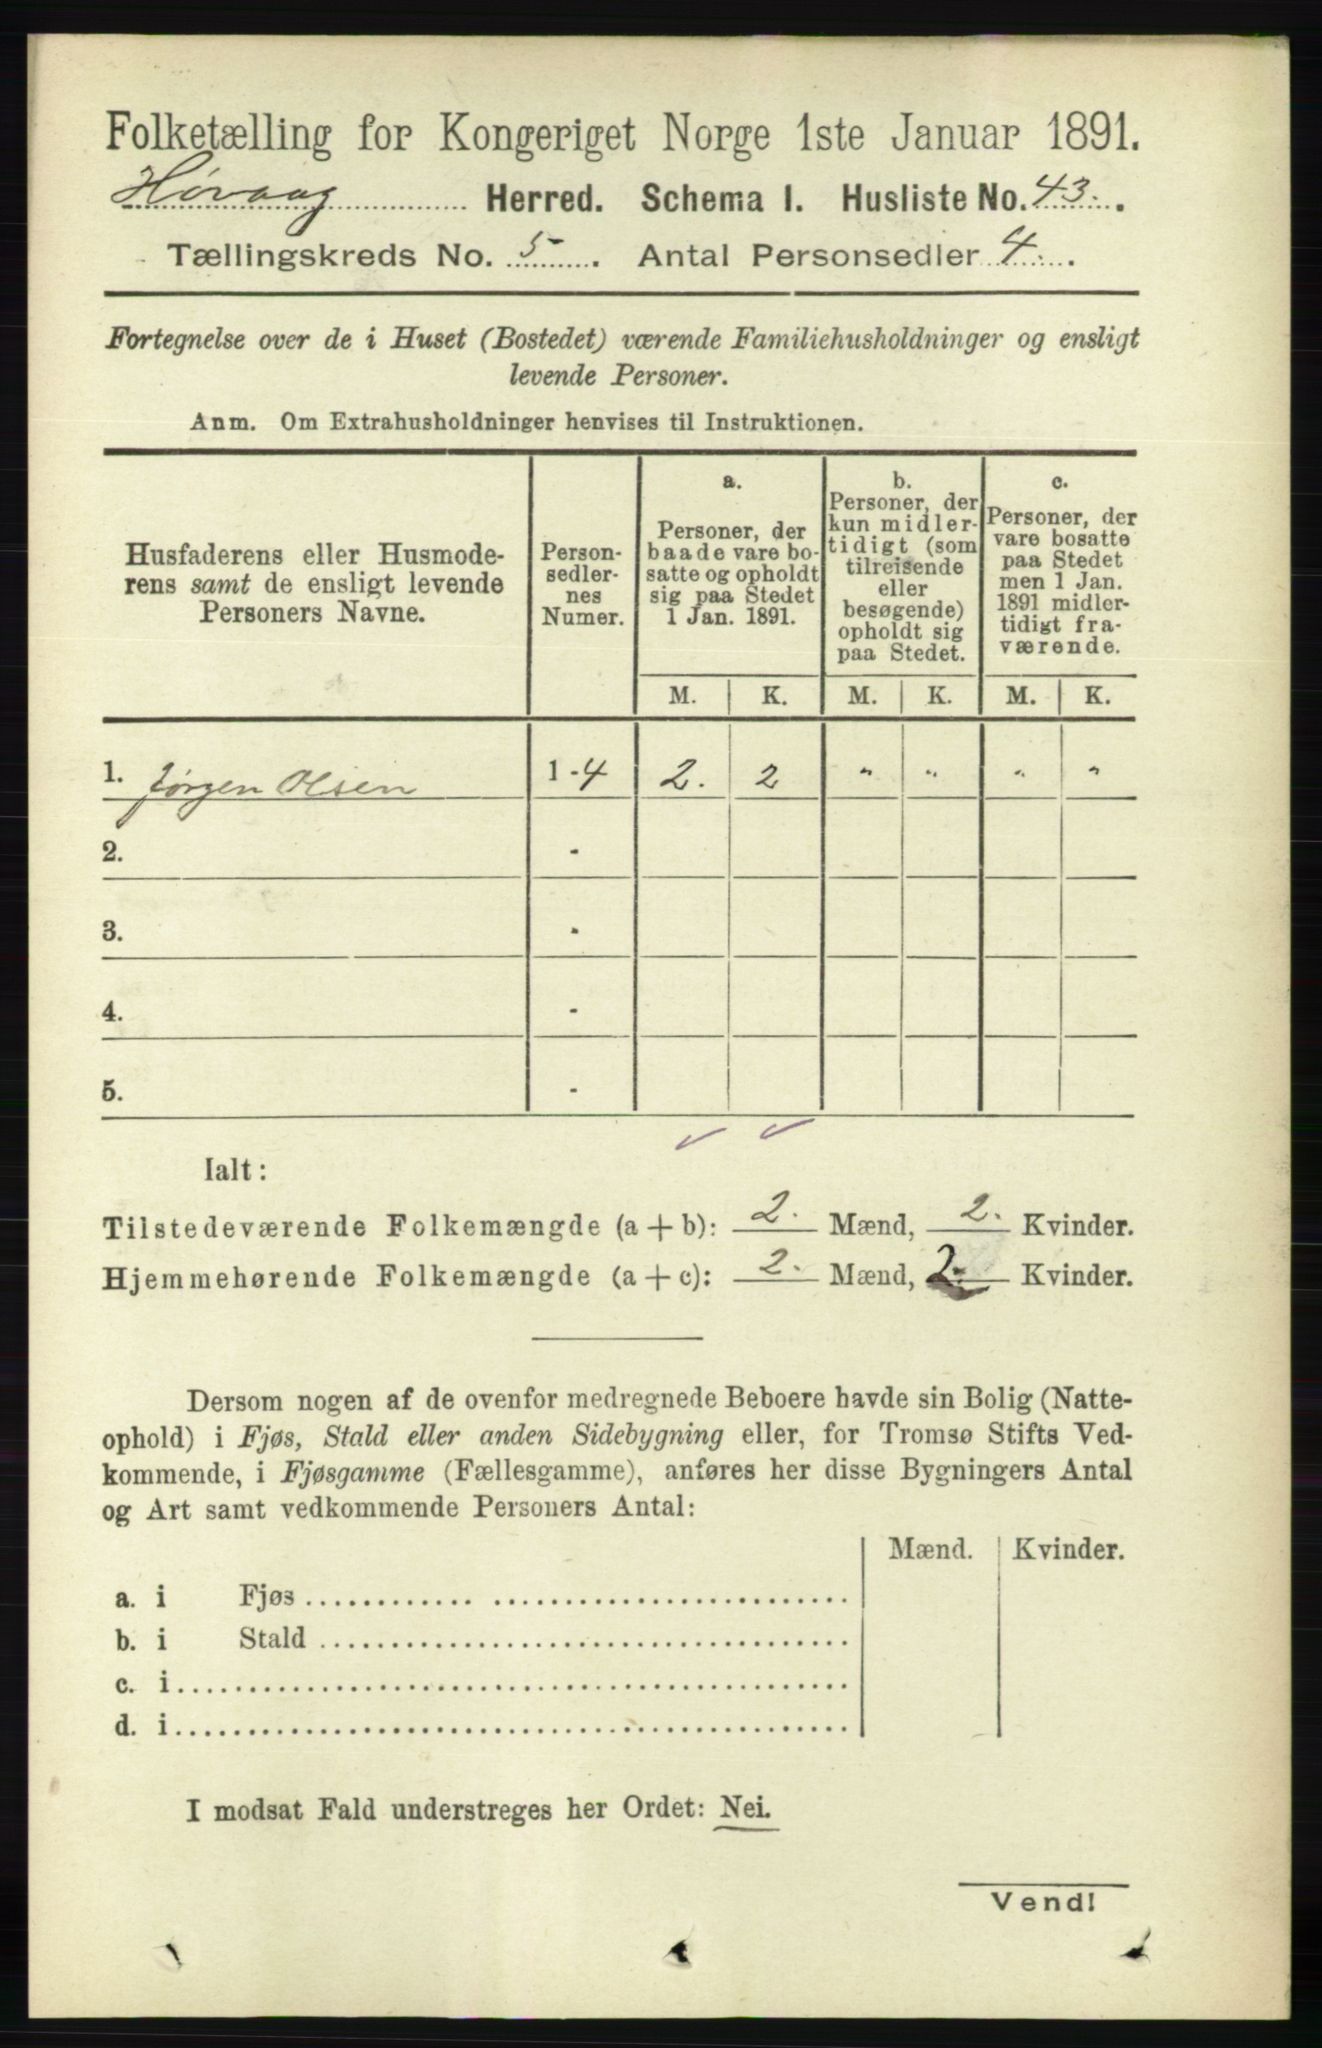 Folketælling for Kongeriget Norge 1ste Januar 1891.
Høvaag Herred. Schema I. Husliste No. 43.
Tællingskreds No. 5. Antal Personsedler 4.
Fortegnelse over de i Huset (Bostedet) værende Familiehusholdninger og ensligt
levende Personer.
Anm. Om Extrahusholdninger henvises til Instruktionen.
Husfaderens eller Husmode-
rens samt de ensligt levende
Personers Navne.
Person-
sedler-
nes
Numer.
a.
Personer, der
baade vare bo-
satte og opholdt
sig paa Stedet
1 Jan. 1891.
b.
Personer, der
kun midler-
tidigt (som
tilreisende
eller
besøgende)
opholdt sig
paa Stedet.
c.
Personer, der
vare bosatte
paa Stedet
men 1 Jan.
1891 midler-
tidigt fra-
værende.
M. K. M. K. M. K.
1. Jørgen Olsen 1-4 2. 2 " " " "
2. -
3. -
4. -
5. -
Ialt:
Tilstedeværende Folkemængde (a + b): 2. Mænd, 2. Kvinder.
Hjemmehørende Folkemængde (a + c): 2. Mænd, 2. Kvinder.
Dersom nogen af de ovenfor medregnede Beboere havde sin Bolig (Natte-
ophold) i Fjøs, Stald eller anden Sidebygning eller, for Tromsø Stifts Ved-
kommende, i Fjøsgamme (Fællesgamme), anføres her disse Bygningers Antal
og Art samt vedkommende Personers Antal:
Mænd. Kvinder.
a. i Fjøs
b. i Stald
c. i
d. i
I modsat Fald understreges her Ordet: Nei.
Vend!